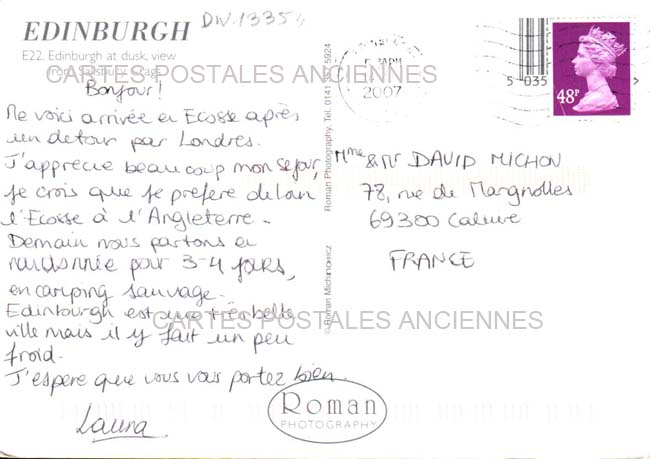 EDINBURGH
DW.13354
E22. Edinburgh at dusk, view
from Salisbury Crags
CARTES POSTALES ANCIENNES
Bonjour!
Me voici arrivée en Ecosse après
un detour par Londres.
J'apprécie beaucoup mon sejour,
je crois que je préfère de loin
l'Ecosse à l'Angleterre.
Demain nous partons en
randonnée pour 3-4 jours,
en camping sauvage.
Edinburgh est une très belle
ville mais il y fait un peu
froid.
J'espère que vous vous portez bien.
Laura
CARTES POSTALES ANCIENNES
© Roman Michniewicz
Roman Photography. Tel. 0141 5924
2007
5 035
48P
Mme & Mr DAVID MICHON
78, rue de Margnolles
69300 Caluire
FRANCE
ROMAN
PHOTOGRAPHY